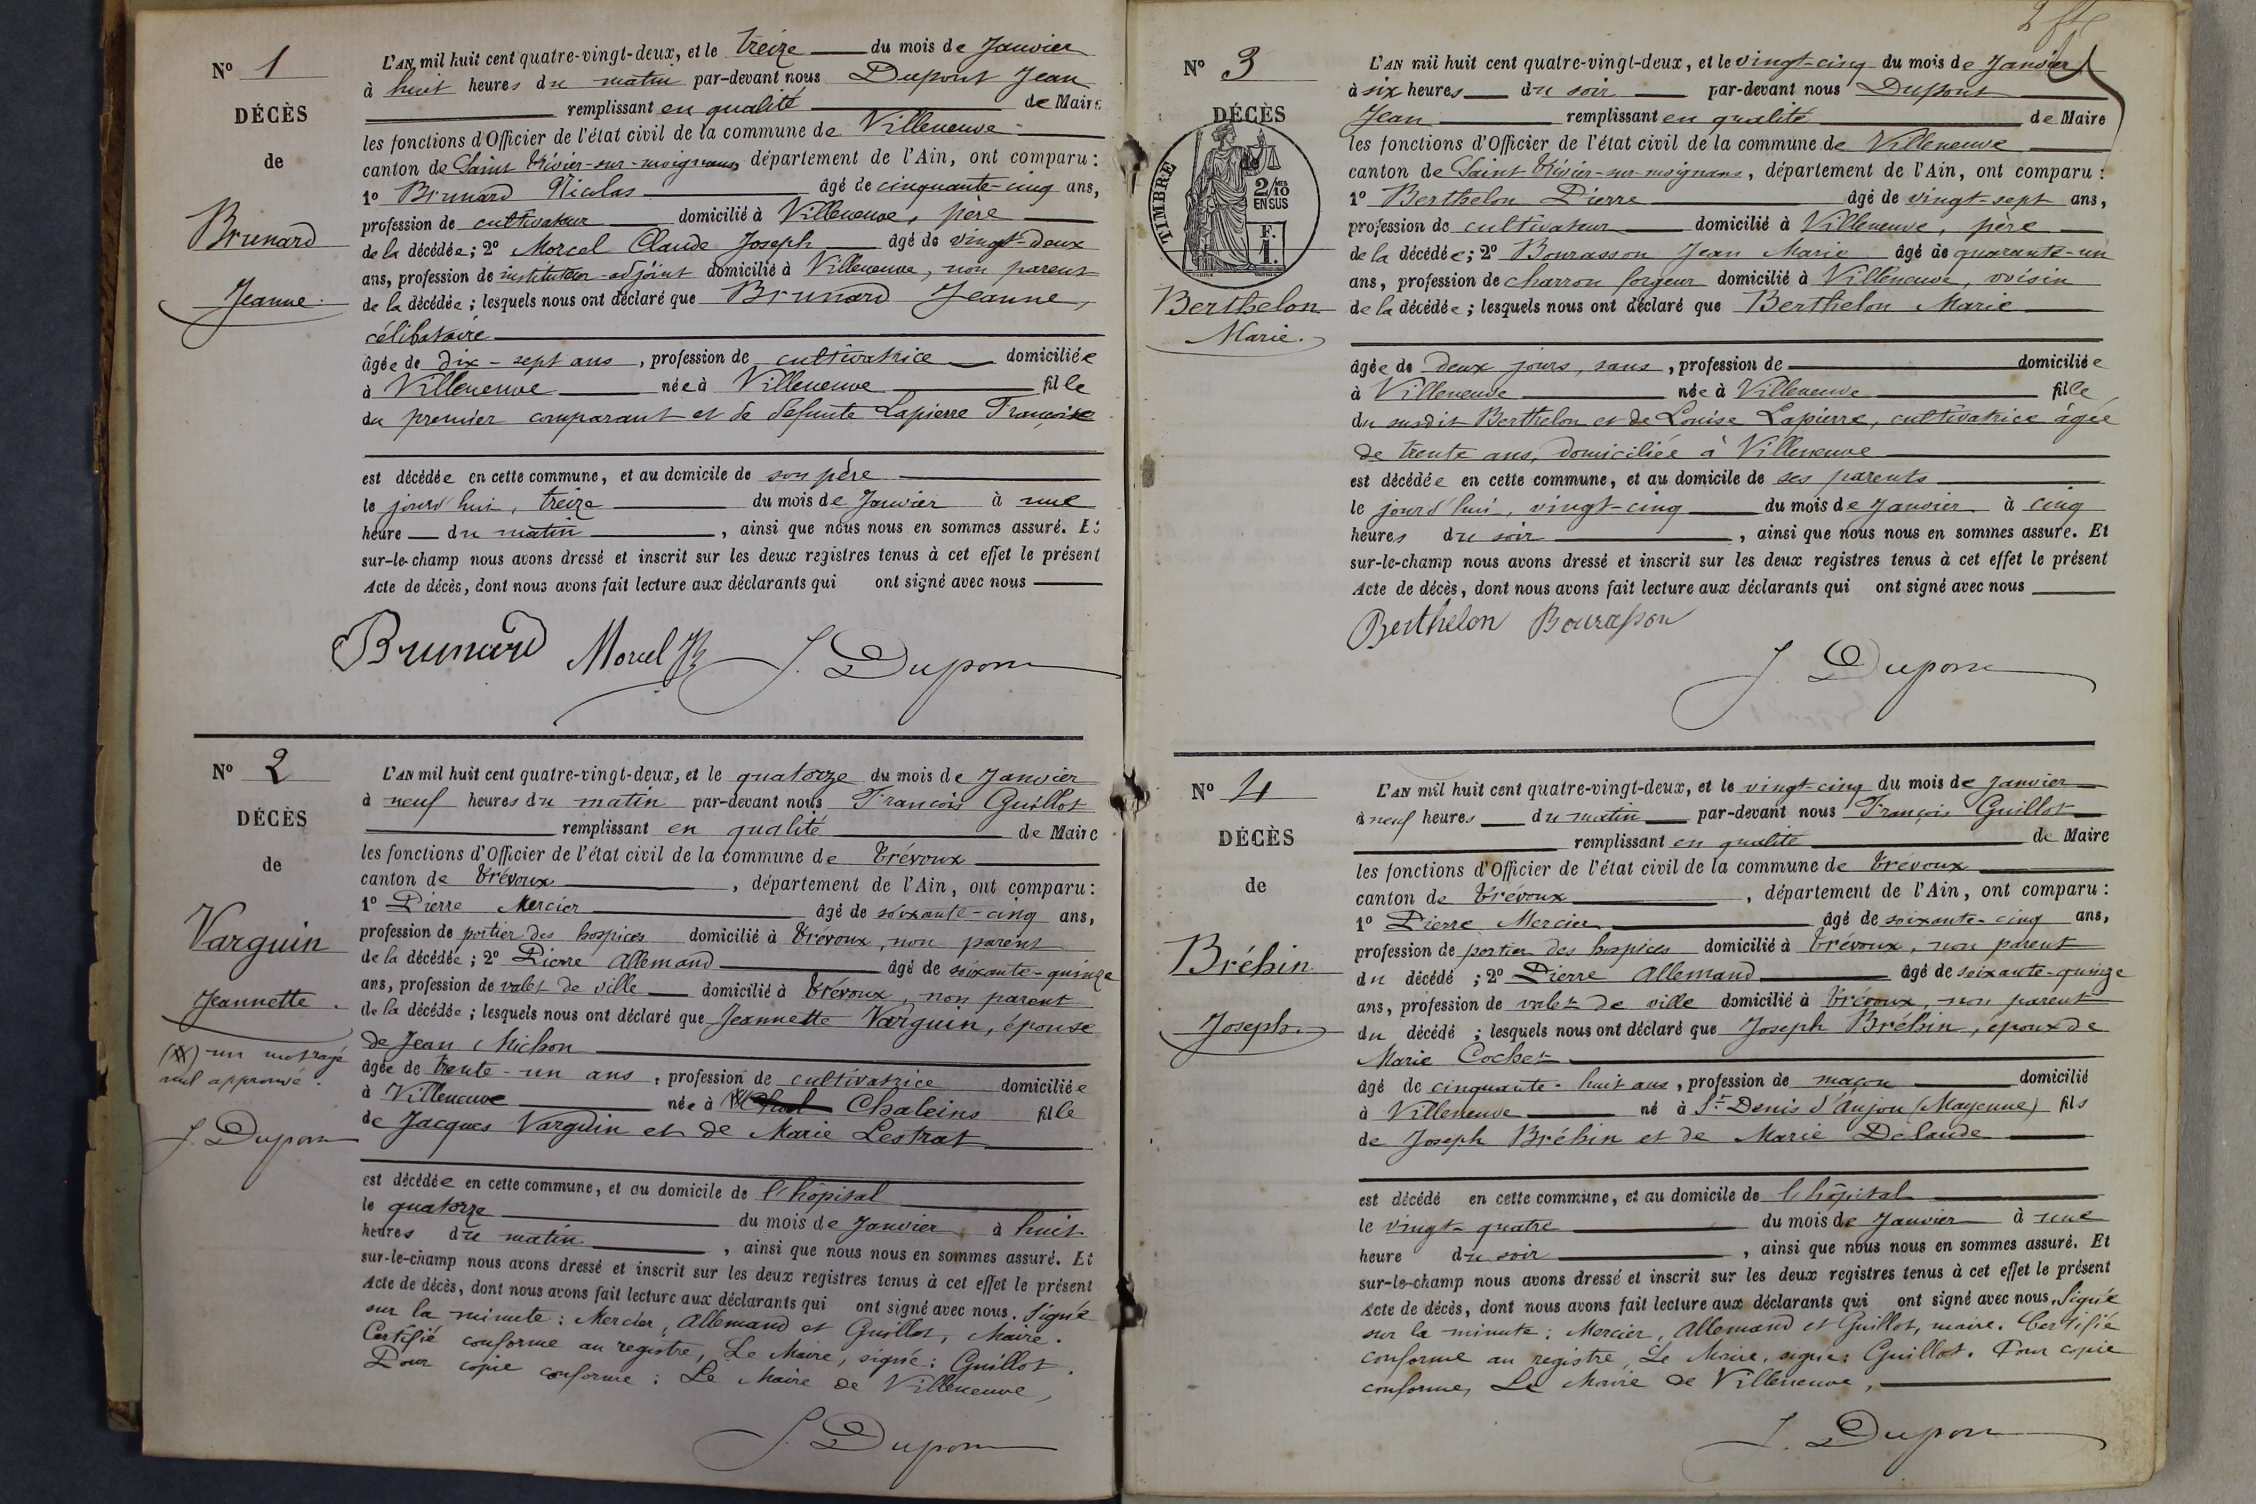 Nº 1
DÉCÈS
de
Brunard
Jeanne.
L'AN mil huit cent quatre-vingt-deux, et le treize du mois de Janvier
à huit heures du matin par-devant nous Dupont Jean
remplissant en qualité de Maire
les fonctions d'Officier de l'état civil de la commune de Villeneuve
canton de Saint Trivier-sur-moignans, département de l'Ain, ont comparu :
1º Brunard Nicolas âgé de cinquante-cinq ans,
profession de cultivateur domicilié à Villeneuve, père
de la décédée ; 2º Morcel Claude Joseph âgé de vingt-deux
ans, profession de instituteur-adjoint domicilié à Villeneuve, non parent
de la décédée ; lesquels nous ont déclaré que Brunard Jeanne,
célibataire
âgée de dix-sept ans, profession de cultivatrice domiciliée
à Villeneuve née à Villeneuve fille
du premier comparant et de défunte Lapierre Françoise
est décédée en cette commune, et au domicile de son père
le jourd'hui, treize du mois de Janvier à une
heure du matin, ainsi que nous nous en sommes assuré. Et
sur-le-champ nous avons dressé et inscrit sur les deux registres tenus à cet effet le présent
Acte de décès, dont nous avons fait lecture aux déclarants qui ont signé avec nous
Brunard Morcel J. Dupont
Nº 2
DÉCÈS
de
Varguin
Jeannette.
un mot rayé
nul approuvé.
J. Dupont
L'AN mil huit cent quatre-vingt-deux, et le quatorze du mois de Janvier
à neuf heures du matin par-devant nous François Guillot
remplissant en qualité de Maire
les fonctions d'Officier de l'état civil de la commune de Trévoux
canton de Trévoux, département de l'Ain, ont comparu :
1º Pierre Mercier âgé de soixante-cinq ans,
profession de portier des hospices domicilié à Trévoux, non parent
de la décédée ; 2º Pierre Allemand âgé de soixante-quinze
ans, profession de valet de ville domicilié à Trévoux, non parent
de la décédée ; lesquels nous ont déclaré que Jeannette Varguin, épouse
de Jean Michon
âgée de trente-un ans, profession de cultivatrice domiciliée
à Villeneuve née à Chaleins fille
de Jacques Varguin et de Marie Lestrat
est décédée en cette commune, et au domicile de l'hôpital
le quatorze du mois de Janvier à huit
heures du matin, ainsi que nous nous en sommes assuré. Et
sur-le-champ nous avons dressé et inscrit sur les deux registres tenus à cet effet le présent
Acte de décès, dont nous avons fait lecture aux déclarants qui ont signé avec nous. Signé
sur la minute : Mercier, Allemand et Guillot, Maire.
Certifié conforme au registre, Le Maire, signé : Guillot.
Pour copie conforme : Le Maire de Villeneuve,
J. Dupont
Nº 3
DÉCÈS
de
TIMBRE
2/10
EN SUS
F.
1.
Berthelon
Marie.
L'AN mil huit cent quatre-vingt-deux, et le vingt-cinq du mois de Janvier
à six heures du soir par-devant nous Dupont
Jean remplissant en qualité de Maire
les fonctions d'Officier de l'état civil de la commune de Villeneuve
canton de Saint Trivier-sur-moignans, département de l'Ain, ont comparu :
1º Berthelon Pierre âgé de vingt-sept ans,
profession de cultivateur domicilié à Villeneuve, père
de la décédée ; 2º Bourasson Jean Marie âgé de quarante-un
ans, profession de charron forgeur domicilié à Villeneuve, voisin
de la décédée ; lesquels nous ont déclaré que Berthelon Marie
âgée de deux jours, sans, profession de domiciliée
à Villeneuve née à Villeneuve fille
du susdit Berthelon et de Louise Lapierre, cultivatrice âgée
de trente ans, domiciliée à Villeneuve
est décédée en cette commune, et au domicile de ses parents
le jourd'hui, vingt-cinq du mois de Janvier à cinq
heures du soir, ainsi que nous nous en sommes assuré. Et
sur-le-champ nous avons dressé et inscrit sur les deux registres tenus à cet effet le présent
Acte de décès, dont nous avons fait lecture aux déclarants qui ont signé avec nous
Berthelon Bourasson
J. Dupont
Nº 4
DÉCÈS
de
Bréhin
Joseph.
L'AN mil huit cent quatre-vingt-deux, et le vingt-cinq du mois de Janvier
à neuf heures du matin par-devant nous François Guillot
remplissant en qualité de Maire
les fonctions d'Officier de l'état civil de la commune de Trévoux
canton de Trévoux, département de l'Ain, ont comparu :
1º Pierre Mercier âgé de soixante-cinq ans,
profession de portier des hospices domicilié à Trévoux, non parent
du décédé ; 2º Pierre Allemand âgé de soixante-quinze
ans, profession de valet de ville domicilié à Trévoux, non parent
du décédé ; lesquels nous ont déclaré que Joseph Bréhin, époux de
Marie Cochet
âgé de cinquante-huit ans, profession de maçon domicilié
à Villeneuve né à St Denis d'Anjou (Mayenne) fils
de Joseph Bréhin et de Marie Delaude
est décédé en cette commune, et au domicile de l'hôpital
le vingt-quatre du mois de Janvier à une
heure du soir, ainsi que nous nous en sommes assuré. Et
sur-le-champ nous avons dressé et inscrit sur les deux registres tenus à cet effet le présent
Acte de décès, dont nous avons fait lecture aux déclarants qui ont signé avec nous. Signé
sur la minute : Mercier, Allemand et Guillot, maire. Certifié
conforme au registre, Le Maire, signé : Guillot. Pour copie
conforme, Le Maire de Villeneuve,
J. Dupont